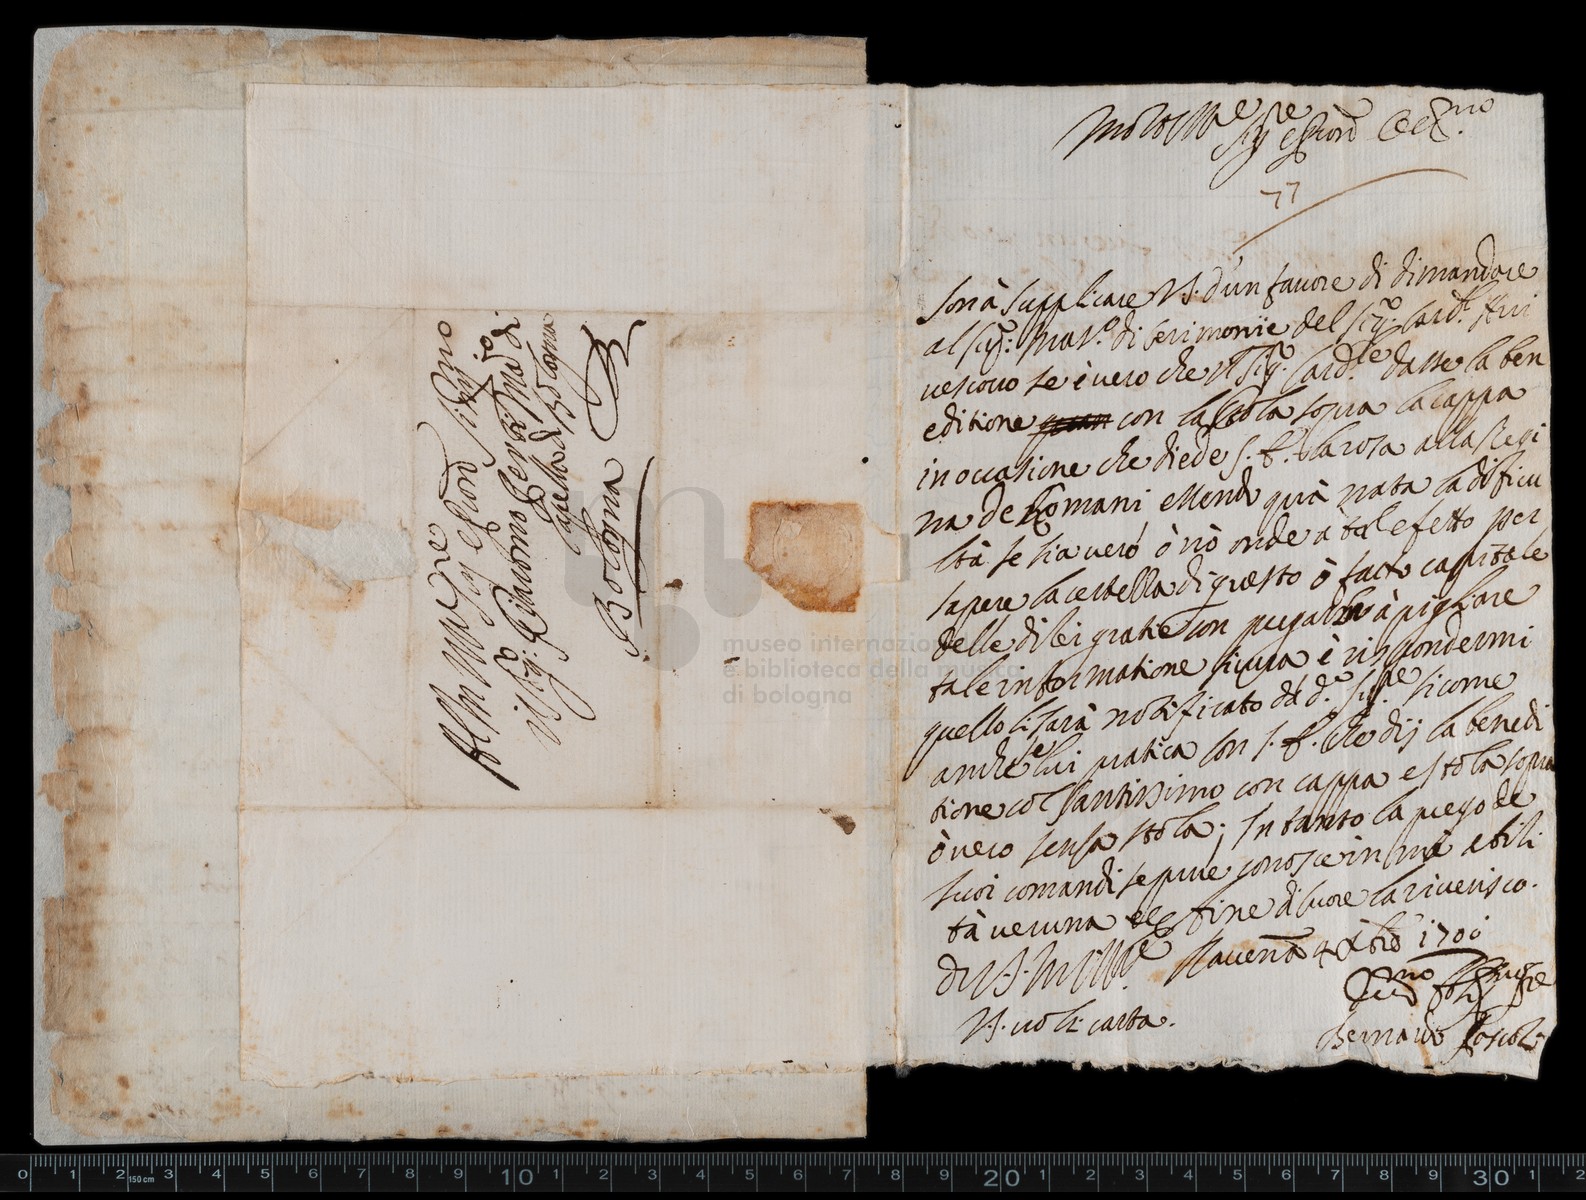 Al Molto Ill.re
Sig.r e Pron Sing.mo
il Sig.r Giacomo Perti Mro di
Capella di Bologna
Bologna
Molto Ill.re
Sig.re e Pron Col.mo
77
Son à supplicare V.S. d'un favore di dimandare
al Sig.r Mas.o di Cerimonie del Sig.r Card.l Arci
vescovo se è vero che il Sig.r Card.le dasse la ben
editione con la stola sopra la cappa
in occasione che diede S. E. la rosa alla Regi
na de Romani essendo quà nata la dificu
ltà se sia vero ò nò onde a tal efetto per
sapere la certezza di questo ò fatto capitale
delle di lei gratie con pregarla à pigliare
tale informatione sicura è rispondermi
quello li sarà notificato dal d.o Sig.re sicome
anche se lui pratica con S. E. che dij la benedi
tione col Santissimo con cappa e stola sopra
òvero senza stola; Intanto la prego de
suoi comandi se pure conosce in me abili
tà veruna e per fine di cuore la riverisco.
Di V.S. M. Ill.re Ravenna 4 Xbre 1700
V.S. volti carta.
Bernardo Foscoli
museo internazionale
e biblioteca della musica
di bologna